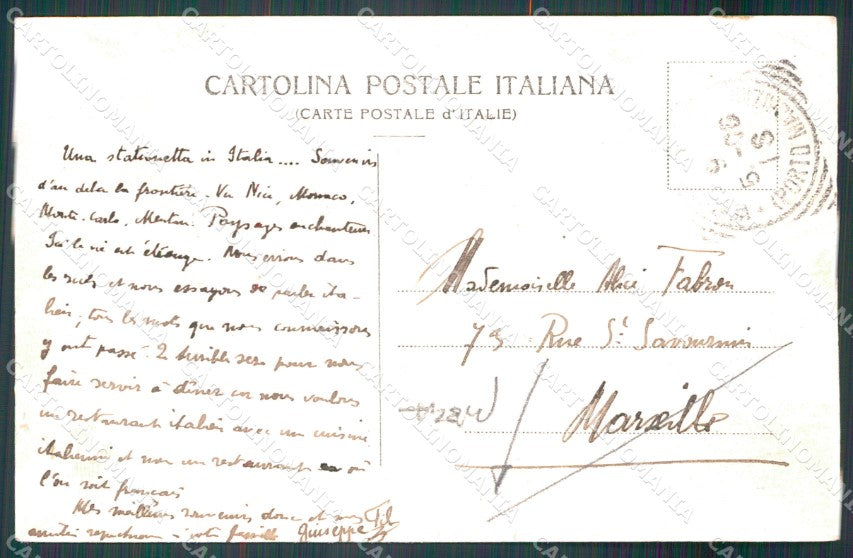 CARTOLINA POSTALE ITALIANA
(CARTE POSTALE d'ITALIE)
Una stationetta in Italia .... Souvenirs
d'au dela la frontière. Vu Nice, Monaco,
Monte-Carlo, Menton. Paysages enchanteurs
Ici la vie est étrange. Nous errons dans
les rues et nous essayons de parler ita-
lien; tous les mots que nous connaissons
y ont passé. 2 terribles pour nous
faire servir à dîner car nous voulons
un restaurant italien avec un cuisine
italienne et non un restaurant où
l'on soit français
Mes meilleurs souvenirs donc et mes
amitiés à votre famille Giuseppe
Mademoiselle Alice Fabron
79 Rue St Savournin
Marseille
(PORTO MAURIZIO)
CARTOLINOMANIA